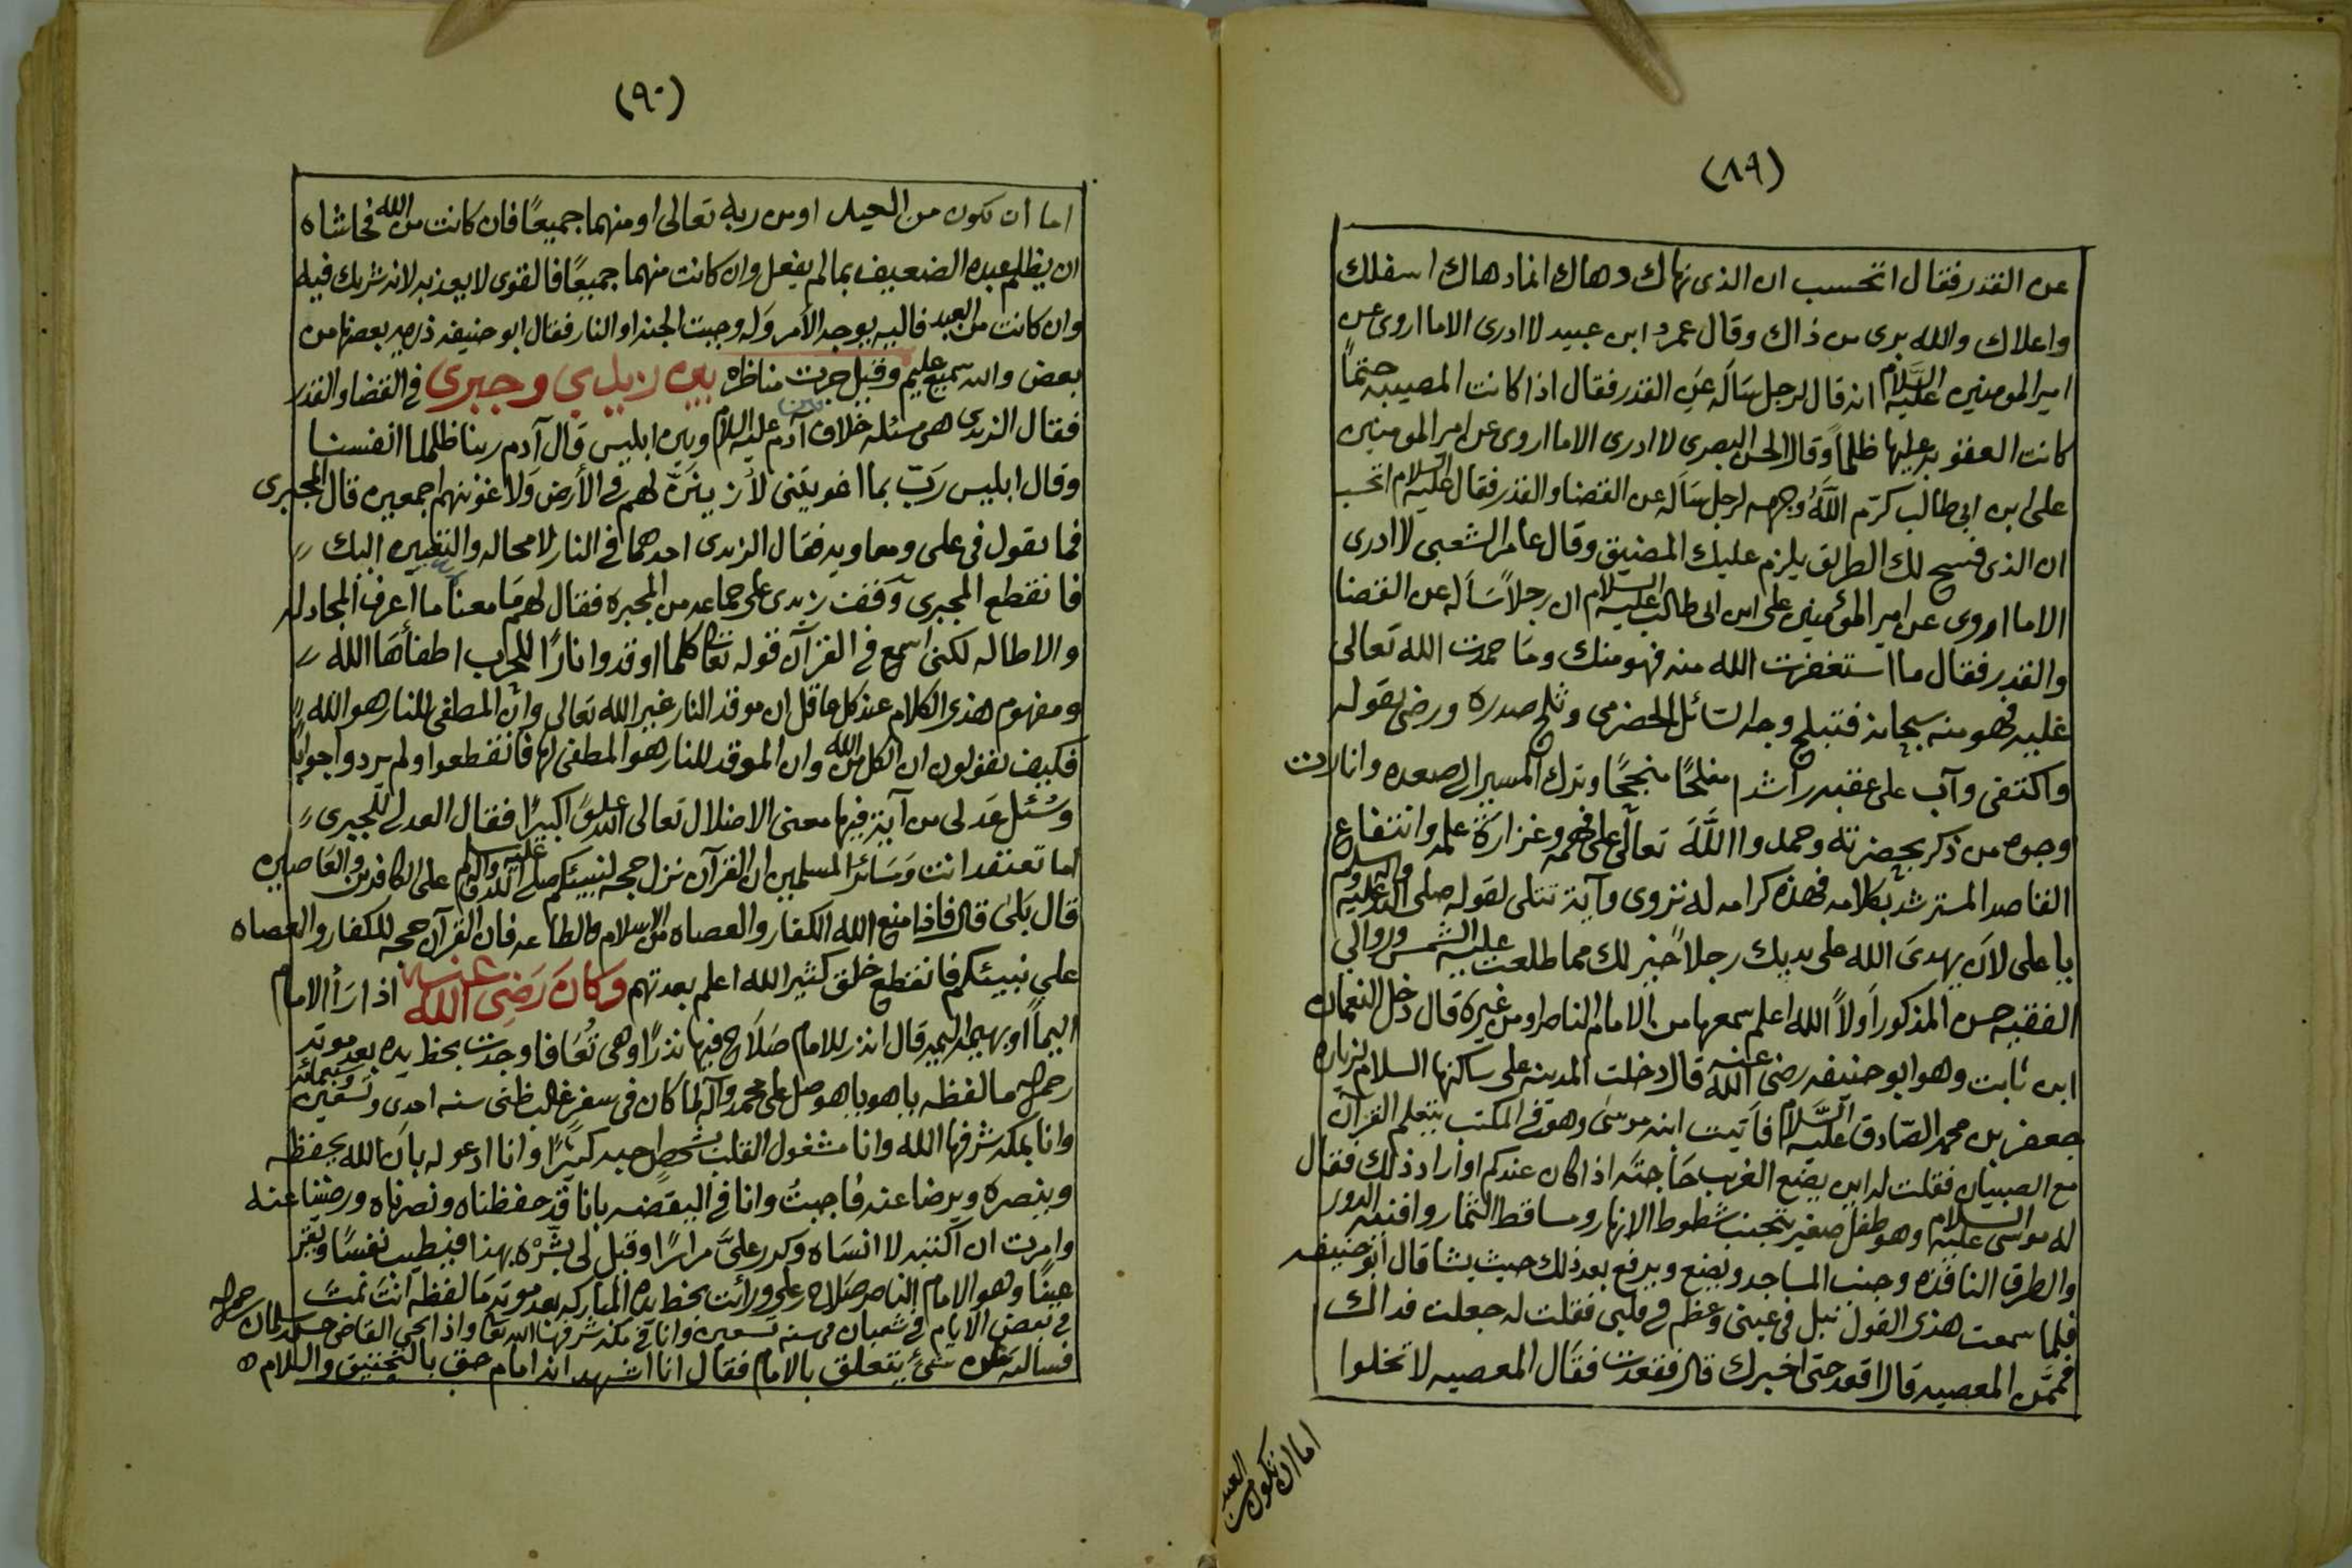 (٨٩)
عن القدر فقال اتحسب ان الذى نهاك دهاك انما دهاك اسفلك
واعلاك والله برى من ذاك وقال عمرو ابن عبيد لا ادرى الا ما اروى عن
امير المومنين عليه السلام انه قال لرجل سَاَله عن القدر فقال اذا كانت المصيبه حتمًا
كانت العقوبه عليها ظلمًا وقال الحسن البصرى لا ادرى الا ما اروى عن امير المومنين
على ابن ابى طالب كرّم اللَّهُ وجهه لرجل سَاَله عن القضا والقدر فقال عليه السلام اتحسب
ان الذى فسح لك الطريق يلزم عليك المضيق وقال عامر الشعبى لا ادرى
الا ما اروى عن امير المؤمنين على ابن ابى طالب عليه السلام ان رجلاً سَاَله عن القضا
والقدر فقال ما استغفرت الله منه فهو منك وما حمدت الله تعالى
عليه فهو منه سبحانه فتبلج وجه السَائل الحضرمى وثلج صدره ورضى بقوله
واكتفى وآب على عقبه راشدا مفلحًا منجحًا وترك المسير الى صعده وانارت
وجوه من ذكر بحضرته وحمدوا اللَّهَ تعالى على فهمه وغزارَة علمه وانتفاع
القاصد المسترشد بكلامه فهذه كرامه له تروى وآية تتلى لقوله صلى الله عليه واله وسلم
يا على لاَن يهدىَ الله على يديك رجلاً خير لك مما طلعت عليه الشمس وروالي
الفقيه حسن المذكور اَولاً الله اعلم سمعها من الامام الناصر او من غيره قال دخل النعمان
ابن ثابت وهو ابو حنيفه رضى الله عنه قال دخلت المدينه على ساكنها السلام لزياره
جعفر بن محمد الصّادق عليه السَّلام فاَتيت ابنه موسَى وهو فى المكتب يتعلم القرآن
مع الصبيان فقلت له اين يضع الغريب حَاجتَه اذا كان عندكم او اراد ذلك فقال
له موسَى عليه السلام وهو طفل صغير يتجنب شطوط الانهار ومساقط الثمار وافنيه الدور
والطرق النافذه وجنب المساجد ويضع ويرفع بعد ذلك حيث يشا قال ابو حنيفه
فلما سمعت هذى القول نبل فى عينى وعظم فى قلبى فقلت له جعلت فداك
فممَّن المعصيه قال اقعد حتى اخبرك قال فقعدت فقال المعصيه لا تخلوا
اما ان تكون من العبد
(٩٠)
اما ان تكون من العبد او من ربه تعالى او منهما جميعًا فان كانت من الله فحاشاه
ان يظلم عبده الضعيف بما لم يفعل وان كانت منهما جميعًا فالقوى لا يعذبه لانه شريك فيه
وان كانت من العبد فاليه يوجه الامر وَله وجبت الجنه او النار فقال ابو حنيفه ذريه بعضها من
بعض والله سميع عليم وقيل جرت مناظره بين زيدي وجبرى فى القضا والقدر
فقال الزيدى هى مسئله خلاف بين آدم عليه السلام وبين ابليس قال آدم ربنا ظلمنا انفسنا
وقال ابليس رَبّ بما اغويتنى لاُزيننَّ لهم فى الأرض وَلاَغوينهم اجمعين قال المجبرى
فما تقول فى على ومعاويه فقال الزيدى احدهما فى النار لا محاله والتعيين اليك
فانقطع المجبرى وَوقف زيدى على جماعه من المجبره فقال لهم مَا معنا ما اعرف المجادله
والاطاله لكنى اسمع فى القرآن قوله تعالى كلما اوقدوا نارًا للحرب اطفأهَا الله
ومفهوم هذى الكلام عند كل عاقل ان موقد النار غير الله تعالى وان المطفى للنار هو الله
فكيف تقولون ان الكل من الله وان الموقد للنار هو المطفى لها فانقطعوا ولم يردوا جوابًا
وَسُئل عَدلى من آية فيها معنى الاضلال تعالى الله علوً اكبيرًا فقال العدلى للجبرى
اما تعتقد انت وَسَائر المسلمين ان القرآن نزل حجه لنبيئكم صلى الله عليه واله وسلم على الكافرين والعَاصين
قال بَلى قال فاذا منع الله الكفار والعصاه من الاسلام والطاعه فان القرآن حجه للكفار والعصاه
على نبيئكم فانقطع خلق كثير الله اعلم بعدتهم وَكانَ رَضِى الله عنه اذا رَأ الامام
اليماً او بهيمه اليمه قال انذر للامام صَلاَح فيها نذرًا وهى تُعَافا وجدت بخط يده بعد موته
رحمه الله ما لفظه يا هو يا هو صل على محمد وآله لما كان فى سفر غالب ظنى سنه احدى وتسعين وسبعمائه
وانا بمكه شرفها الله وانا مشغول القلب بشخص احبه كثيرًا وانا ادعو له بان الله يحفظه
وينصره ويرضا عنه فاجبتُ وانا فى اليقضه بانا قد حفظناه ونصرناه ورضينا عنه
وامرت ان اكتبه لا انسَاه وكرر علىَّ مرارًا وقيل لى بشَّرْه بهذا فيطيب نفسًا ويقر
عينًا وهو الامام الناصر صَلاح ابن على ورأيت بخط يده المباركه بعد موته مَا لفظه انتَ تمتَ
فى بعض الايام فى شعبان من سنه تسعين وانا فى مكه شرفها الله تعالى واذا بحى القاضى حسن سلمان رحمه الله
فسالته عن شئ يتعلق بالامام فقال انا اشهد انه امام حق بالتحقيق والسلام